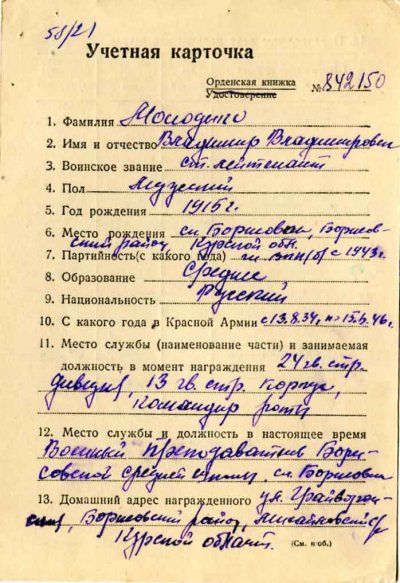 58/21
Учетная карточка
Орденская книжка
Удостоверение
№ 842150
1. Фамилия Молодико
2. Имя и отчество Владимир Владимирович
3. Воинское звание ст. лейтенант
4. Пол Мужской
5. Год рождения 1915 г.
6. Место рождения сл. Борисовка, Борисов-
ский район, Курской обл.
7. Партийность (с какого года) чл. ВКП(б) с 1943 г.
8. Образование Среднее
9. Национальность Русский
10. С какого года в Красной Армии с 13.8.34 г. по 15.5.46 г.
11. Место службы (наименование части) и занимаемая
должность в момент награждения 24 гв. стр.
дивизия, 13 гв. стр. корпус,
командир роты
12. Место службы и должность в настоящее время
Военный преподаватель Бори-
совской средней школы, сл. Борисовка
13. Домашний адрес награжденного ул. Грайворон-
Борисовский район,
Курской област.
(См. н об.)